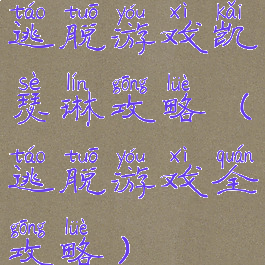 táo tuō yóu xì kǎi
逃脱游戏凯
sè lín gōng lüè
瑟琳攻略（
táo tuō yóu xì quán
逃脱游戏全
gōng lüè
攻略）